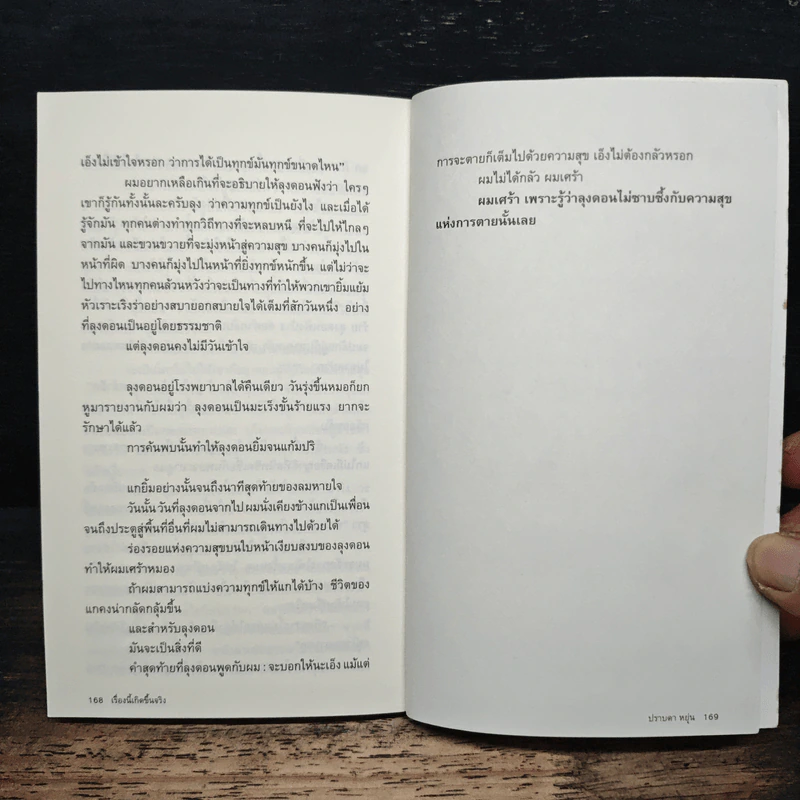 เอ็งไม่เข้าใจหรอก ว่าการได้เป็นทุกข์มันทุกข์ขนาดไหน"
ผมอยากเหลือเกินที่จะอธิบายให้ลุงดอนฟังว่า ใครๆ
เขาก็รู้กันทั้งนั้นละครับลุง ว่าความทุกข์เป็นยังไง และเมื่อได้
รู้จักมัน ทุกคนต่างทำทุกวิถีทางที่จะหลบหนี ที่จะไปให้ไกลๆ
จากมัน และขวนขวายที่จะมุ่งหน้าสู่ความสุข บางคนก็มุ่งไปใน
หน้าที่ผิด บางคนก็มุ่งไปในหน้าที่ยิ่งทุกข์หนักขึ้น แต่ไม่ว่าจะ
ไปทางไหนทุกคนล้วนหวังว่าจะเป็นทางที่ทำให้พวกเขายิ้มแย้ม
หัวเราะเริงร่าอย่างสบายอกสบายใจได้เต็มที่สักวันหนึ่ง อย่าง
ที่ลุงดอนเป็นอยู่โดยธรรมชาติ
แต่ลุงดอนคงไม่มีวันเข้าใจ
ลุงดอนอยู่โรงพยาบาลได้คืนเดียว วันรุ่งขึ้นหมอก็ยก
หูมารายงานกับผมว่า ลุงดอนเป็นมะเร็งขั้นร้ายแรง ยากจะ
รักษาได้แล้ว
การค้นพบนั้นทำให้ลุงดอนยิ้มจนแก้มปริ
แกยิ้มอย่างนั้นจนถึงนาทีสุดท้ายของลมหายใจ
วันนั้น วันที่ลุงดอนจากไป ผมนั่งเคียงข้างแกเป็นเพื่อน
จนถึงประตูสู่พื้นที่อื่นที่ผมไม่สามารถเดินทางไปด้วยได้
ร่องรอยแห่งความสุขบนใบหน้าเงียบสงบของลุงดอน
ทำให้ผมเศร้าหมอง
ถ้าผมสามารถแบ่งความทุกข์ให้แกได้บ้าง ชีวิตของ
แกคงน่ากลัดกลุ้มขึ้น
และสำหรับลุงดอน
มันจะเป็นสิ่งที่ดี
คำสุดท้ายที่ลุงดอนพูดกับผม : จะบอกให้นะเอ็ง แม้แต่
168 เรื่องนี้เกิดขึ้นจริง
การจะตายก็เต็มไปด้วยความสุข เอ็งไม่ต้องกลัวหรอก
ผมไม่ได้กลัว ผมเศร้า
ผมเศร้า เพราะรู้ว่าลุงดอนไม่ซาบซึ้งกับความสุข
แห่งการตายนั้นเลย
ปราบดา หยุ่น 169